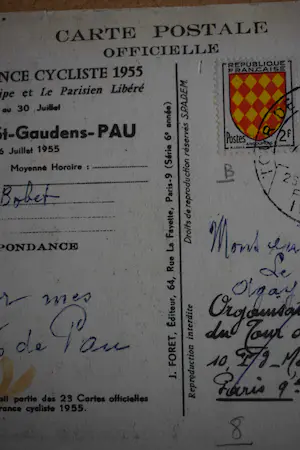 CARTE POSTALE
OFFICIELLE
NCE CYCLISTE 1955
ipe et Le Parisien Libéré
au 30 Juillet
St-Gaudens-PAU
6 Juillet 1955
Moyenné Horoire :
Bobet
PONDANCE
mes
de Pau
ait partie des 23 Cartes officielles
rance cycliste 1955.
J. FORET, Éditeur, 64, Rue La Fayette, Paris-9 (Série 6e année)
Droits de reproduction réservés SPADEM
Reproduction interdite
REPUBLIQUE
FRANÇAISE
Postes
2F
B
Le
Organisa
du Tour d
10,
Paris 9e
8